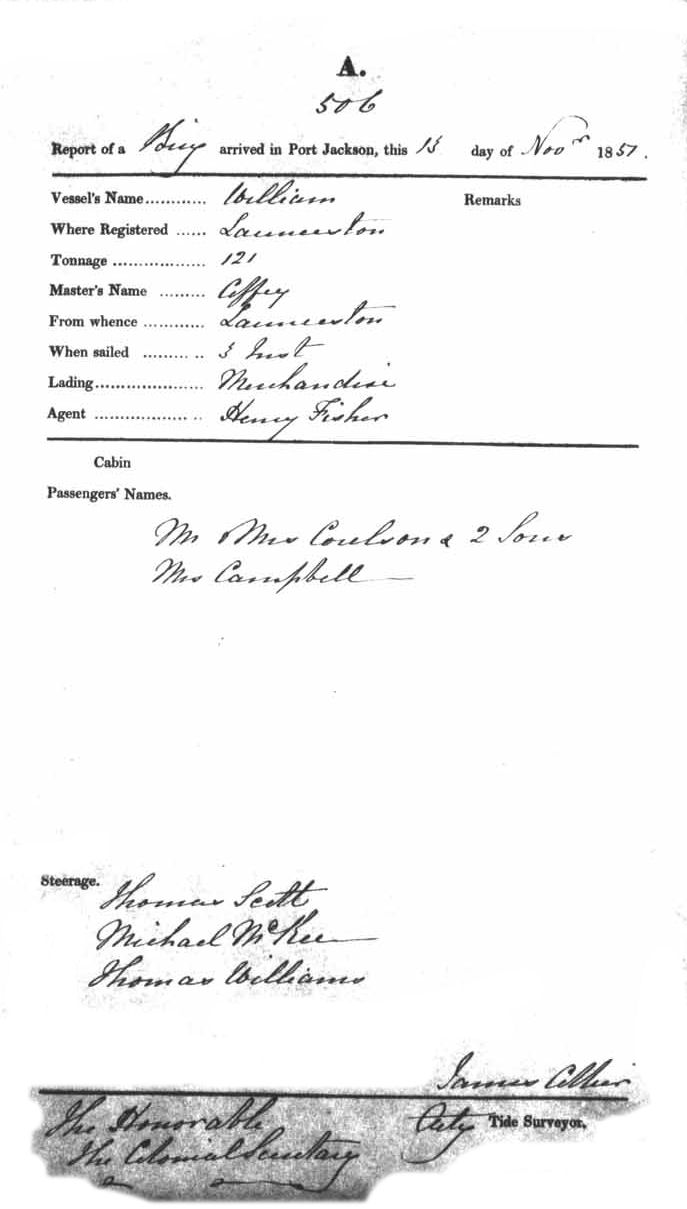 A.
506
Report of a Brig arrived in Port Jackson, this 13 day of Novr 1851.
Vessel's Name............ William Remarks
Where Registered ...... Launceston
Tonnage .................. 121
Master's Name .........
From whence ............ Launceston
When sailed ......... .. 3 Inst
Lading..................... Merchandise
Agent .................. .. Henry Fisher
Cabin
Passengers' Names.
Mr & Mrs Coulson & 2 Sons
Mrs Campbell
Steerage.
Thomas Scott
Michael McKee
Thomas Williams
James
The Honorable Actg Tide Surveyor.
The Colonial Secretary